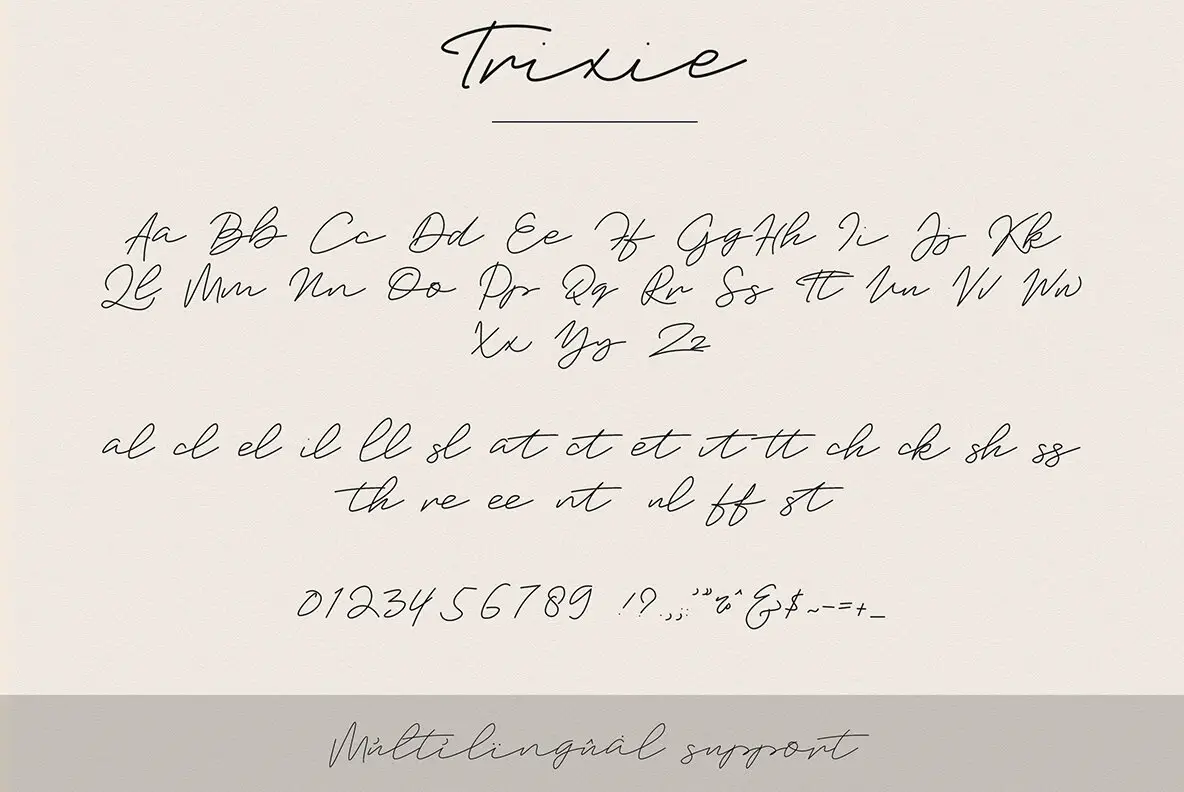 Trixie
Aa Bb Cc Dd Ee Ff Gg Hh Ii Jj Kk
Ll Mm Nn Oo Pp Qq Rr Ss Tt Uu Vv Ww
Xx Yy Zz
al cl el il ll sl at ct et it tt ch ck sh ss
th re ee nt nl ff st
0123456789 !?.,;:'"%^&$~-–=+_
Múltílïngûäl support